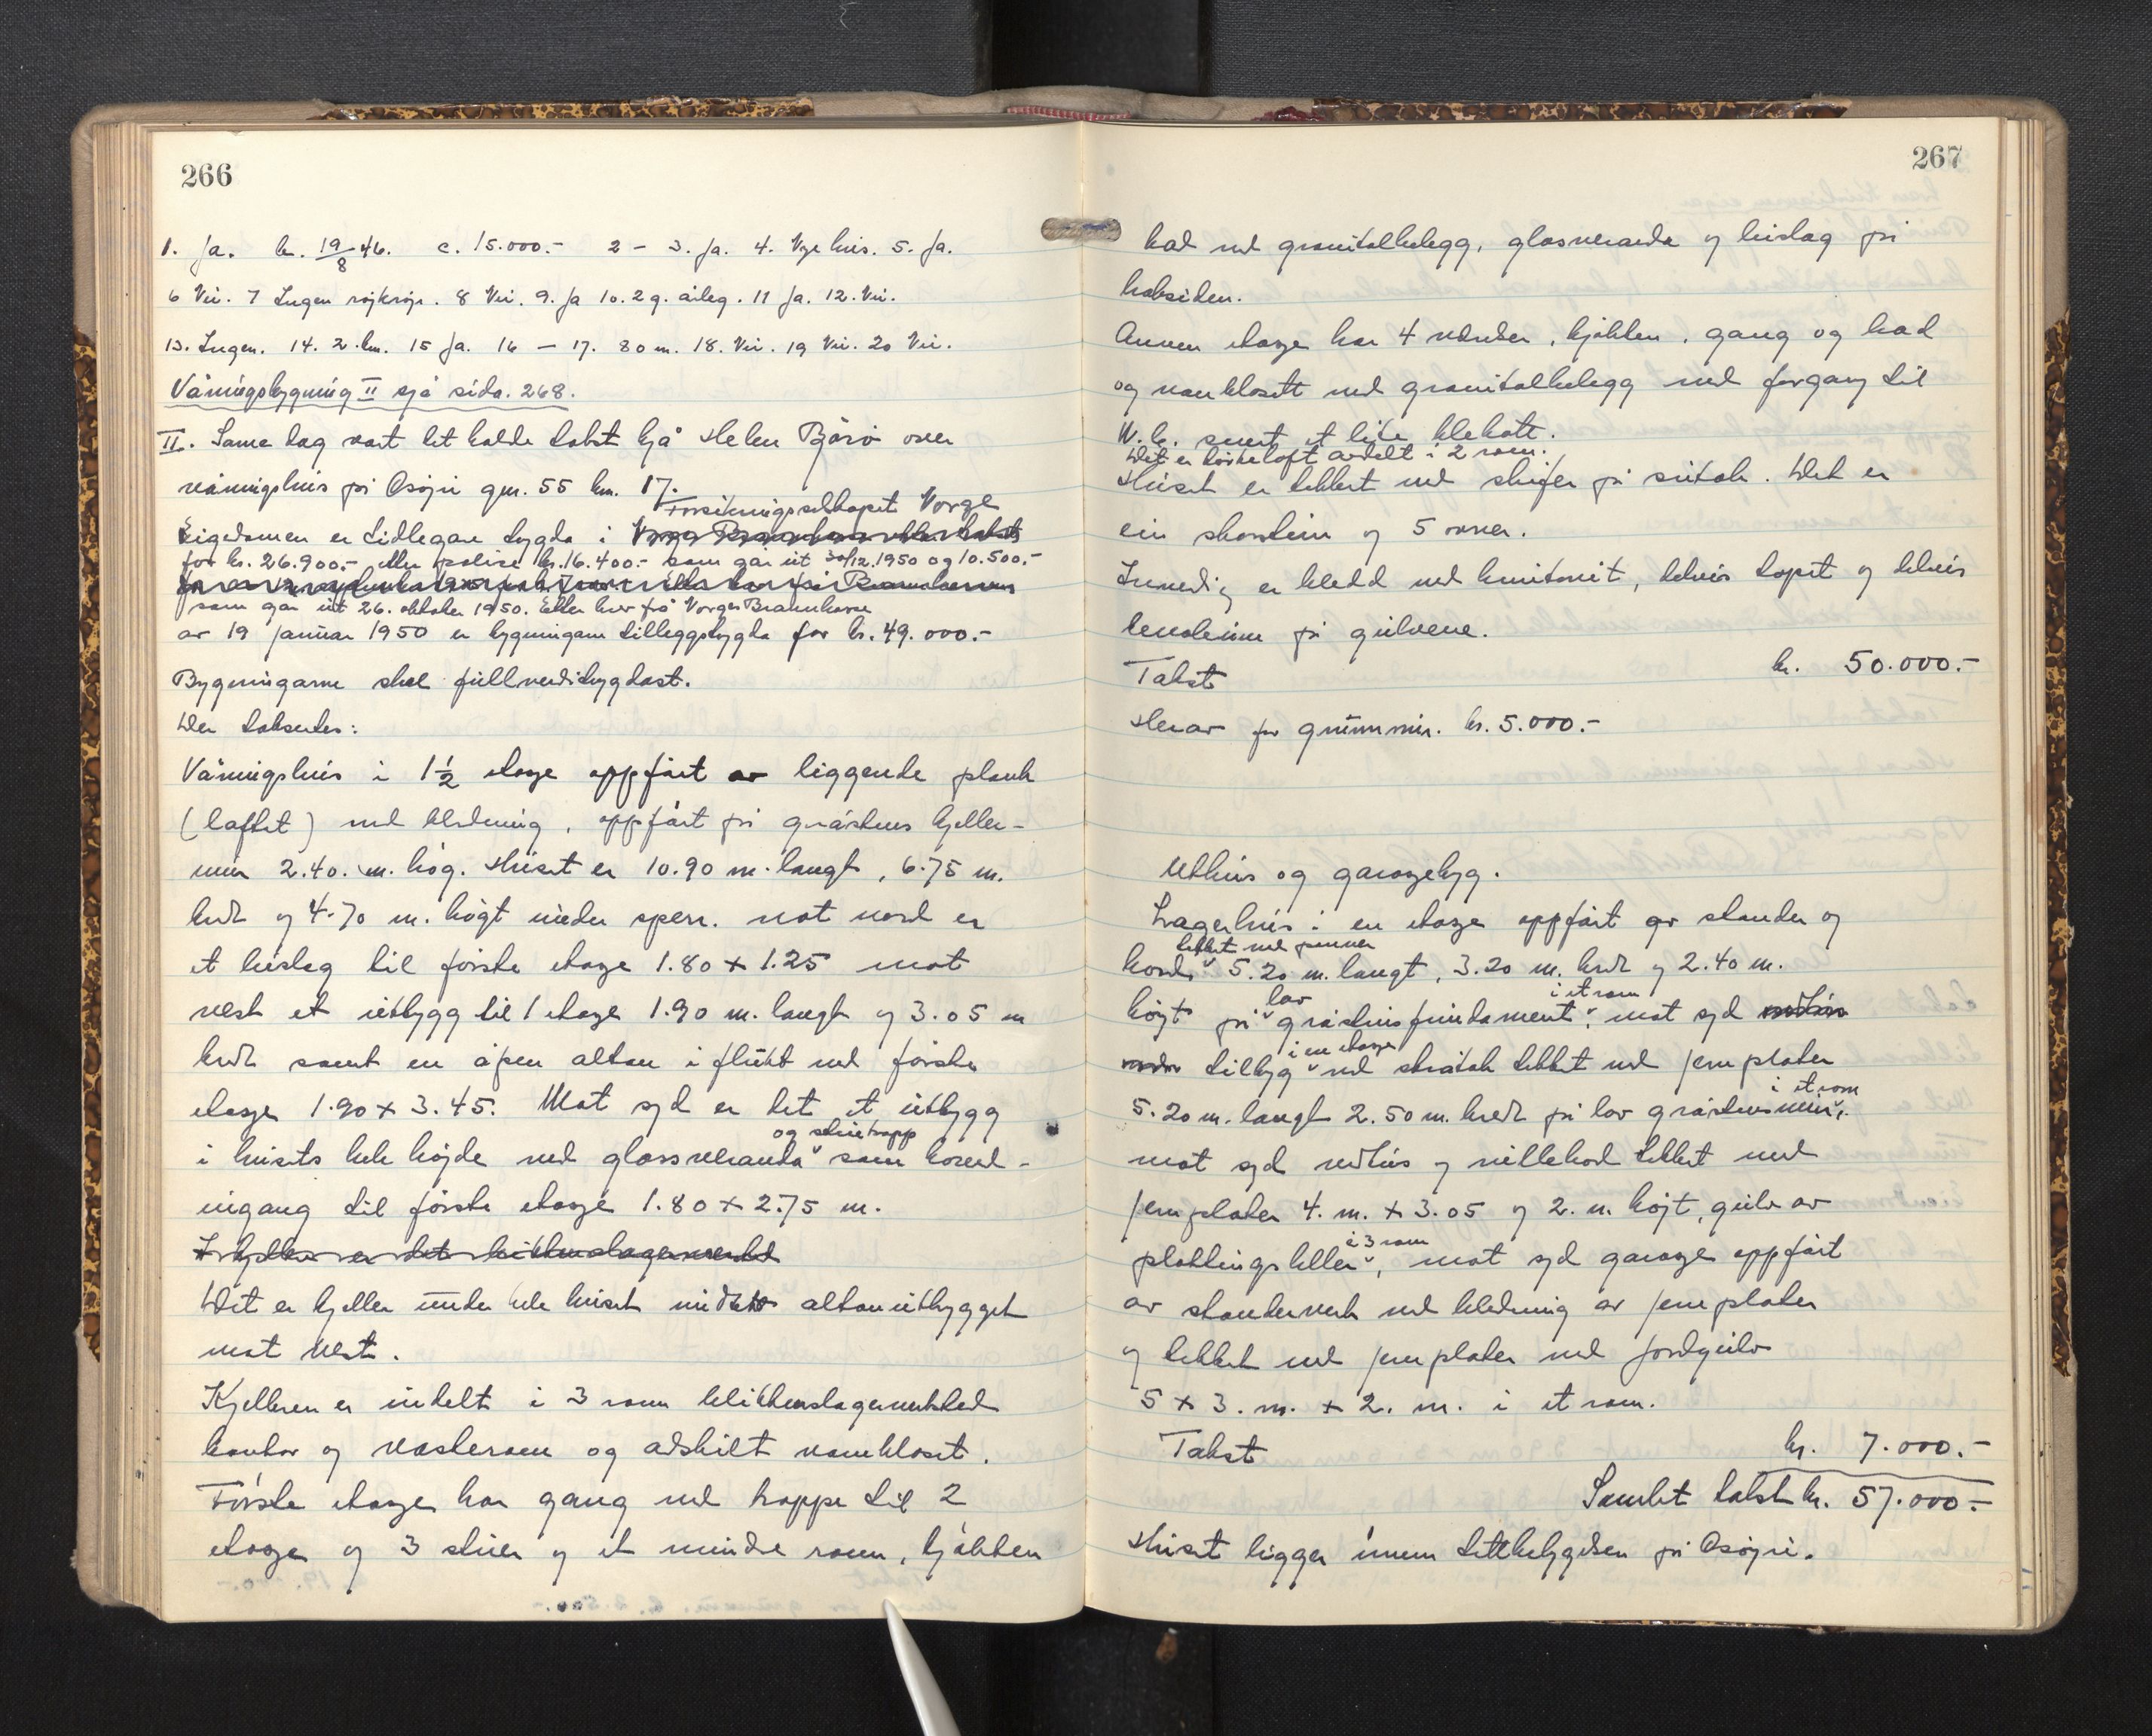 266
1. Ja. b. 19/8 46. c. 15.000.- 2 - 3. Ja. 4. Nye hus. 5. Ja.
6 Nei. 7 Ingen røjkrør. 8 Nei. 9. Ja 10. 2 g. årleg. 11 Ja. 12. Nei.
13. Ingen. 14. 2. km. 15 Ja. 16 - 17. 80 m. 18. Nei. 19 Nei. 20 Nei.
Våningsbygning II sjå sida. 268.
II. Same dag vart det halde takst hjå Helen Bjørø over
våningshus på Osøyri gnr. 55 bn. 17.
Forsikringsselskapet Norge
Eigedomen er tidlegare trygda i
for kr. 26.900.- etter polise kr. 16.400.- som går ut 30/12.1950 og 10.500.-
som går ut 26. oktober 1950. Etter brev frå Norges Brannkasse
av 19 januar 1950 er bygningane tilleggstrygda for kr. 49.000.-
Bygningane skal fullverditrygdast.
Der takseres:
Våningshus i 1½ etage oppført av liggende plank
(laftet) med kledning, oppført på gråsteins kjeller-
mur 2.40. m. høg. Huset er 10.90 m. langt, 6.75 m.
bredt og 4.70 m. høgt under sperr. mot nord er
et bislag til første etage 1.80 x 1.25 mot
vest et utbygg til 1 etage 1.90 m. langt og 3.05 m
bredt samt en åpen altan i flukt med første
etage 1.90 x 3.45. Mot syd er det et utbygg
og skuetrapp
i husets hele højde med glassveranda som hoved-
ingang til første etage 1.80 x 2.75 m.
I kjeller er det blikkenslagerverksted
Det er kjeller under hele huset undtatt altanutbygget
mot vest.
Kjelleren er indelt i 3 rom blikkenslagerverksted
kontor og vaskerom og adskilt vannkloset.
Første etage har gang med trappe til 2
etage og 3 stuer og et mindre rom, kjøkken
267
bad med granitolbelegg, glasveranda og bislag på
baksiden.
Annen etage har 4 værelser, kjøkken, gang og bad
og vannklosett med granitolbelegg med forgang til
W.C. samt et lite klekott.
Det er tørkeloft avdelt i 2 rom.
Huset er tekket med skifer på sutak. Det er
ein skorstein og 5 ovner.
Innvendig er kledd med huntonit, delvis tapet og delvis
linoleum på gulvene.
Takst kr. 50.000.-
Herav for grunnmur. kr. 5.000.-
Uthus og garagebyg.
Lagerhus i en etage oppført av stander og
tekket med panner
bord 5.20 m. langt, 3.20 m. bredt og 2.40 m.
lav i et rom
høgt på gråsteinsfundament, mot syd
i en etage
tilbyg med skråtak tekket med jernplater
i et rom
5.20 m. langt 2.50 m. bredt på lav gråsteinsmur,
mot syd vedhus og sillebod tekket med
jernplater 4. m. x 3.05 og 2. m. højt, gulv av
i 3 rom
plattingsheller, mot syd garage oppført
av standerverk med kledning av jernplater
og tekket med jernplater med jordgulv
5 x 3. m. x 2. m. i et rom.
Takst kr. 7.000.-
Samlet takst kr. 57.000.-
Huset ligger innom tettbebygelsen på Osøyri.